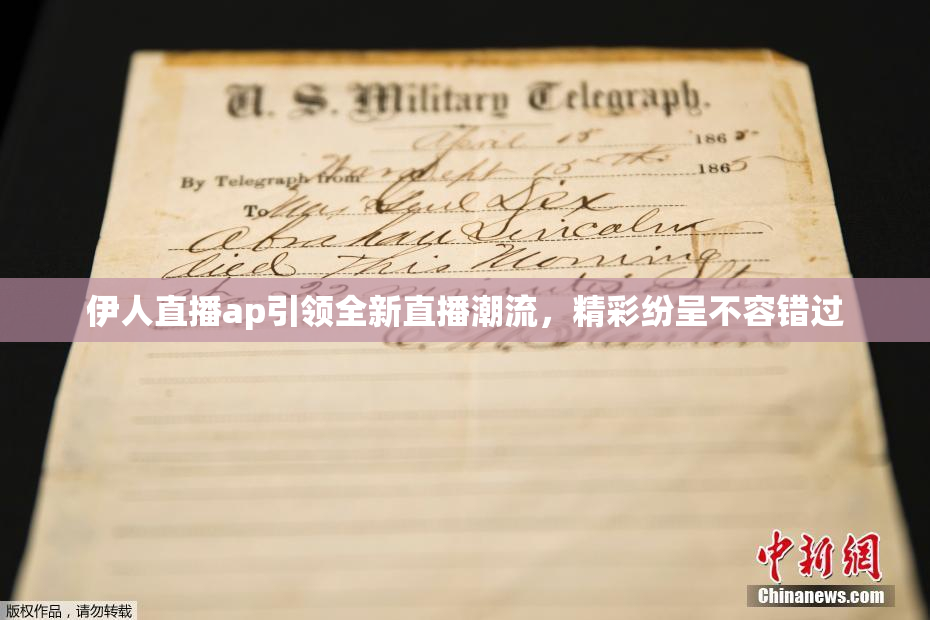 U. S. Military Telegraph.
April 15 1865
By Telegraph from War Dept 15th 1865
To Maj Genl Dix
Abraham Lincoln
died This Morning
22 minutes after
伊人直播ap引领全新直播潮流，精彩纷呈不容错过
E. M. Stanton
中新网
Chinanews.com
版权作品，请勿转载